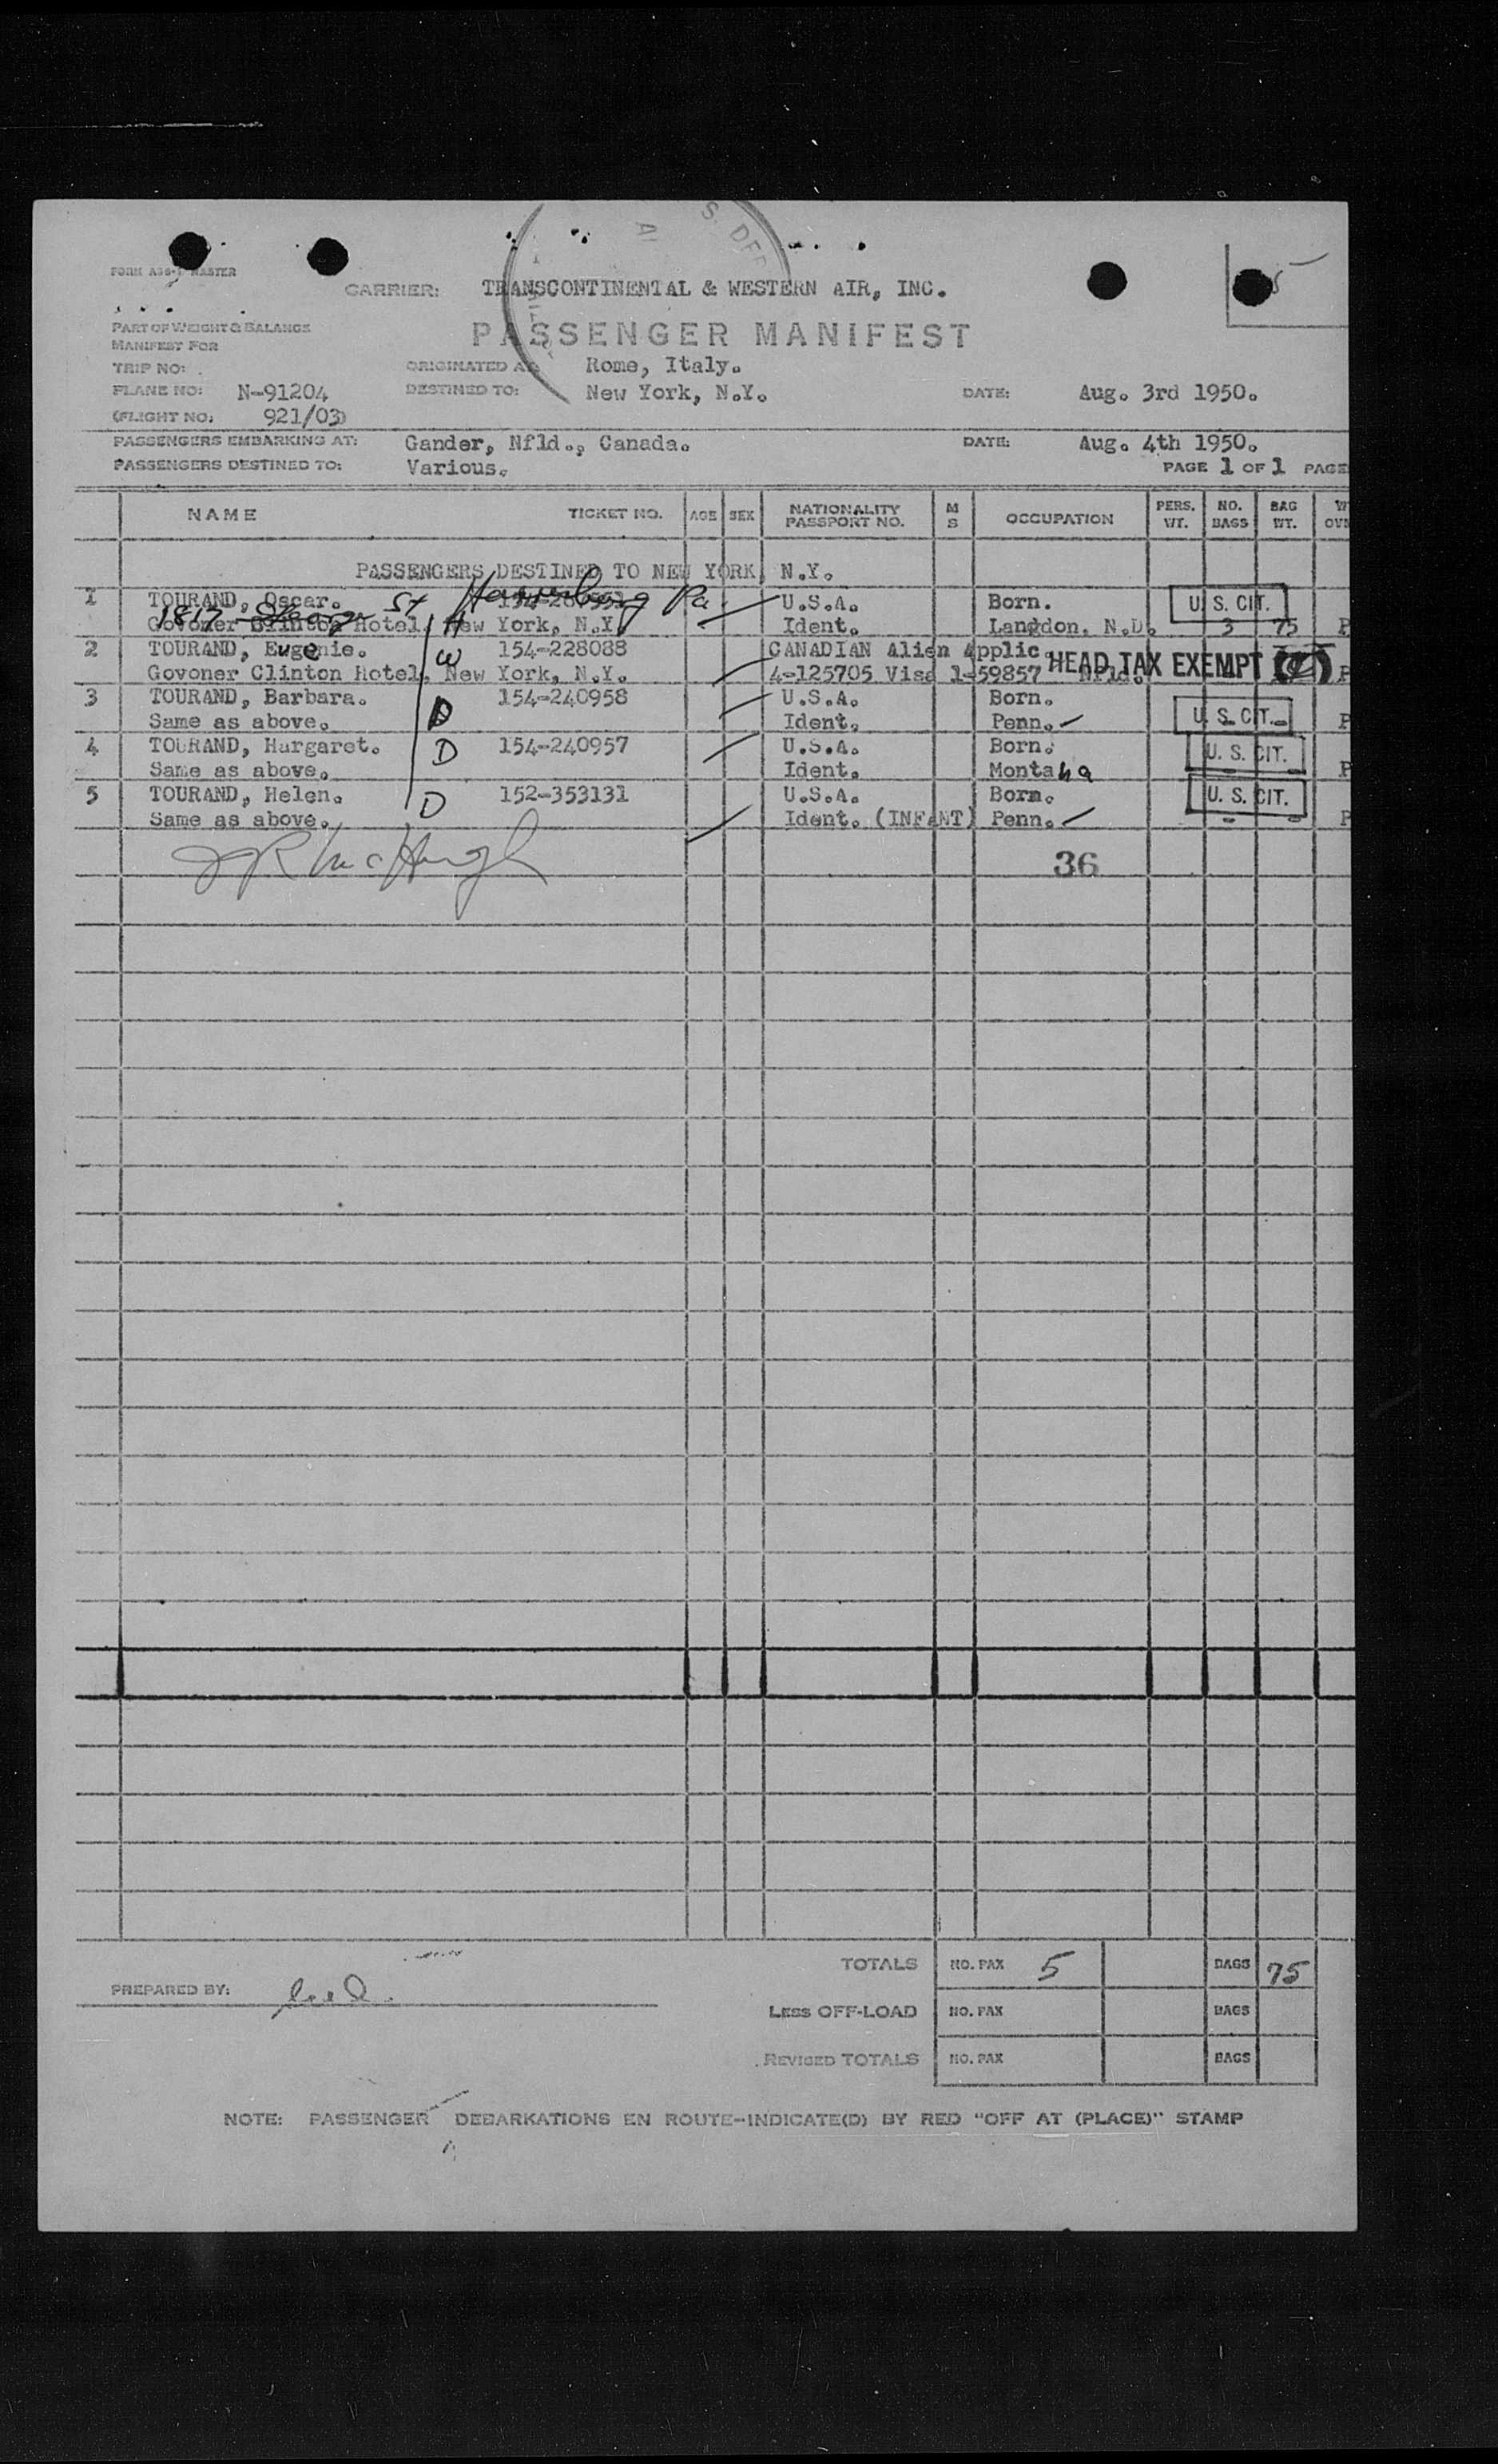 S. DEF
5
FORM A36-1 MASTER
CARRIER: TRANSCONTINENTAL & WESTERN AIR, INC.
PART OF WEIGHT & BALANCE
MANIFEST FOR
PASSENGER MANIFEST
TRIP NO: ORIGINATED AT: Rome, Italy.
PLANE NO: N-91204 DESTINED TO: New York, N.Y. DATE: Aug. 3rd 1950.
(FLIGHT NO: 921/03)
PASSENGERS EMBARKING AT: Gander, Nfld., Canada. DATE: Aug. 4th 1950.
PASSENGERS DESTINED TO: Various. PAGE 1 OF 1 PAGE
NAME TICKET NO. AGE SEX NATIONALITY PASSPORT NO. M S OCCUPATION PERS. WT. NO. BAGS BAG WT.
PASSENGERS DESTINED TO NEW YORK, N.Y.
1 TOURAND, Oscar. U.S.A. Born. U.S. CIT.
1817 St Pa.
Govoner Clinton Hotel, New York, N.Y. H Ident. Langdon, N.D. 3 75 P
2 TOURAND, Eugenie. W 154-228088 CANADIAN Alien Applic. HEAD TAX EXEMPT
Govoner Clinton Hotel, New York, N.Y. 4-125705 Visa 1-59857 Nfld. P
3 TOURAND, Barbara. D 154-240958 U.S.A. Born. U.S. CIT.
Same as above. Ident. Penn. - - P
4 TOURAND, Margaret. D 154-240957 U.S.A. Born. U.S. CIT.
Same as above. Ident. Montana - - P
5 TOURAND, Helen. D 152-353131 U.S.A. Born. U.S. CIT.
Same as above. Ident. (INFANT) Penn. - - P
36
TOTALS NO. PAX 5 BAGS 75
PREPARED BY:
LESS OFF-LOAD NO. PAX BAGS
REVISED TOTALS NO. PAX BAGS
NOTE: PASSENGER DEBARKATIONS EN ROUTE-INDICATE(D) BY RED "OFF AT (PLACE)" STAMP